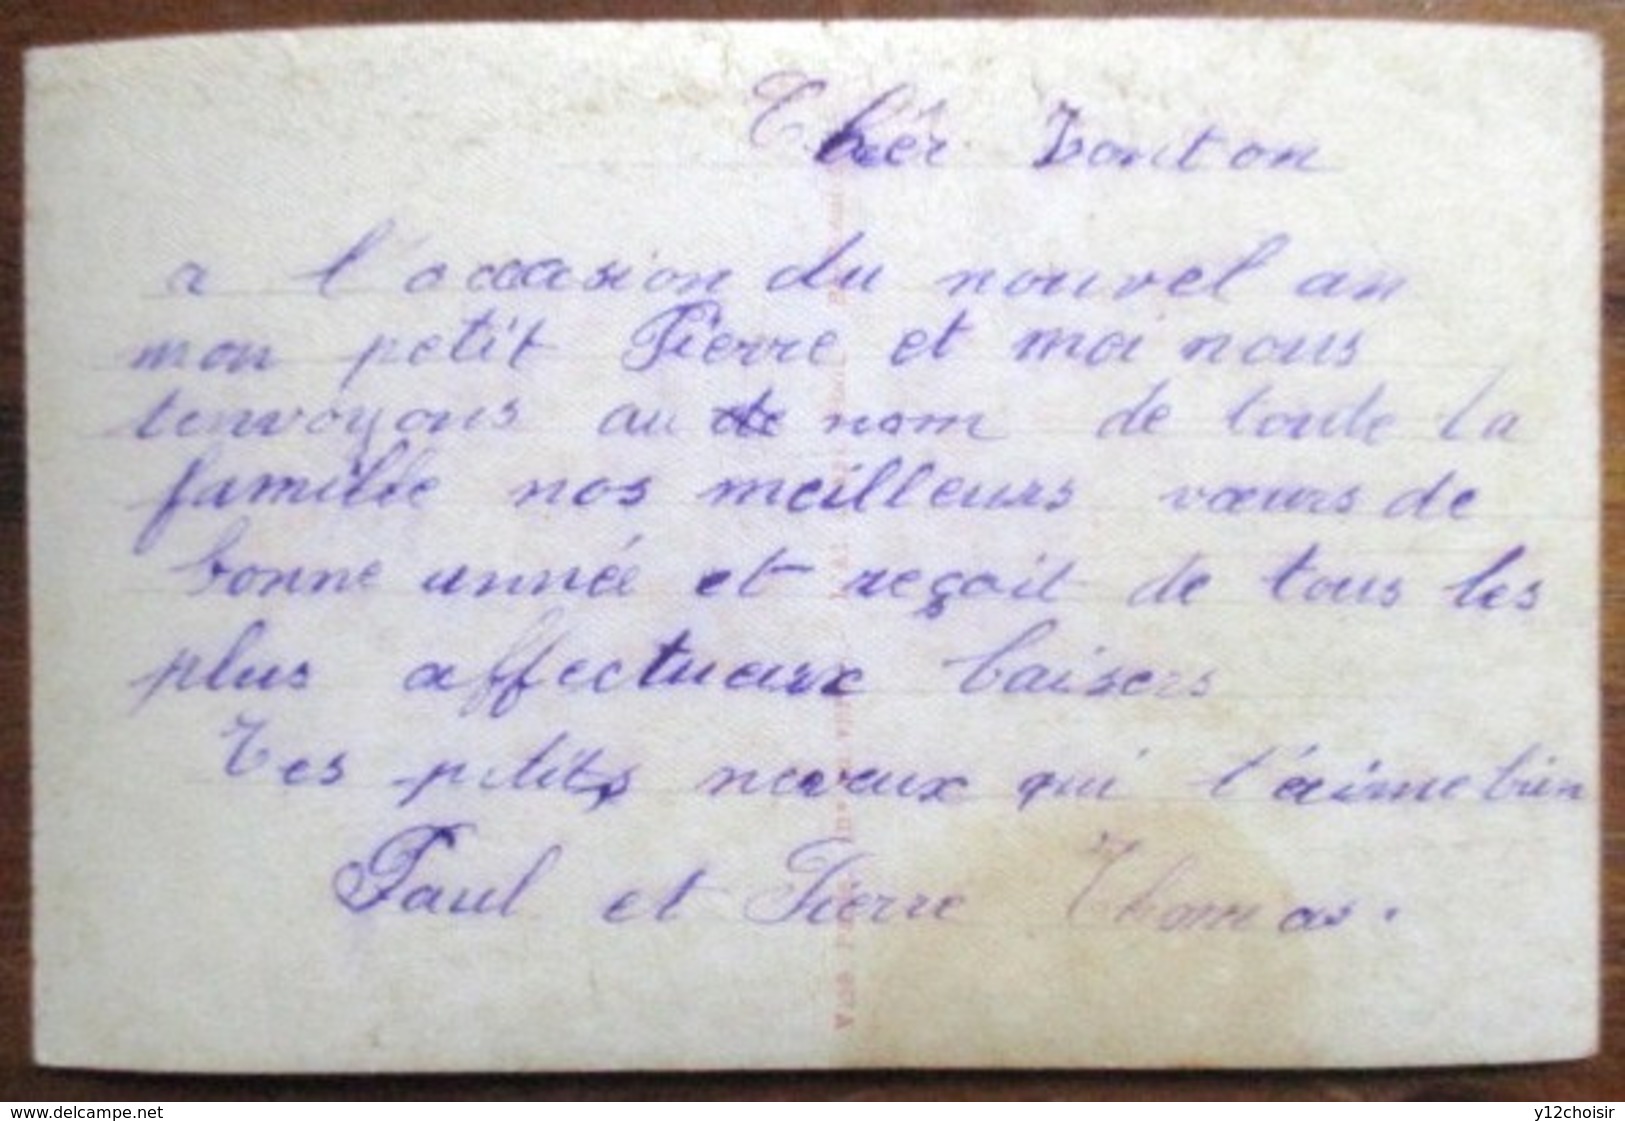 Chér Tonton
a l'occasion du nouvel an
mon petit Pierre et moi nous
tenvoyons au de nom de toute la
famille nos meilleurs vœurs de
bonne année et reçoit de tous les
plus affectueux baisers
Tes petits neveux qui t'aime bien
Paul et Pierre Thomas.
www.delcampe.net
y12choisir